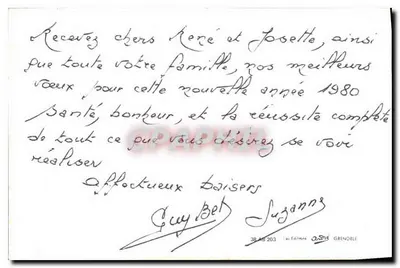 Recevez chers René et Josette, ainsi
que toute votre famille, nos meilleurs
vœux pour cette nouvelle année 1980
santé, bonheur, et la réussite complète
de tout ce que vous désirez se voir
réaliser
affectueux baisers
Guy Bet Suzanne
GRENOBLE